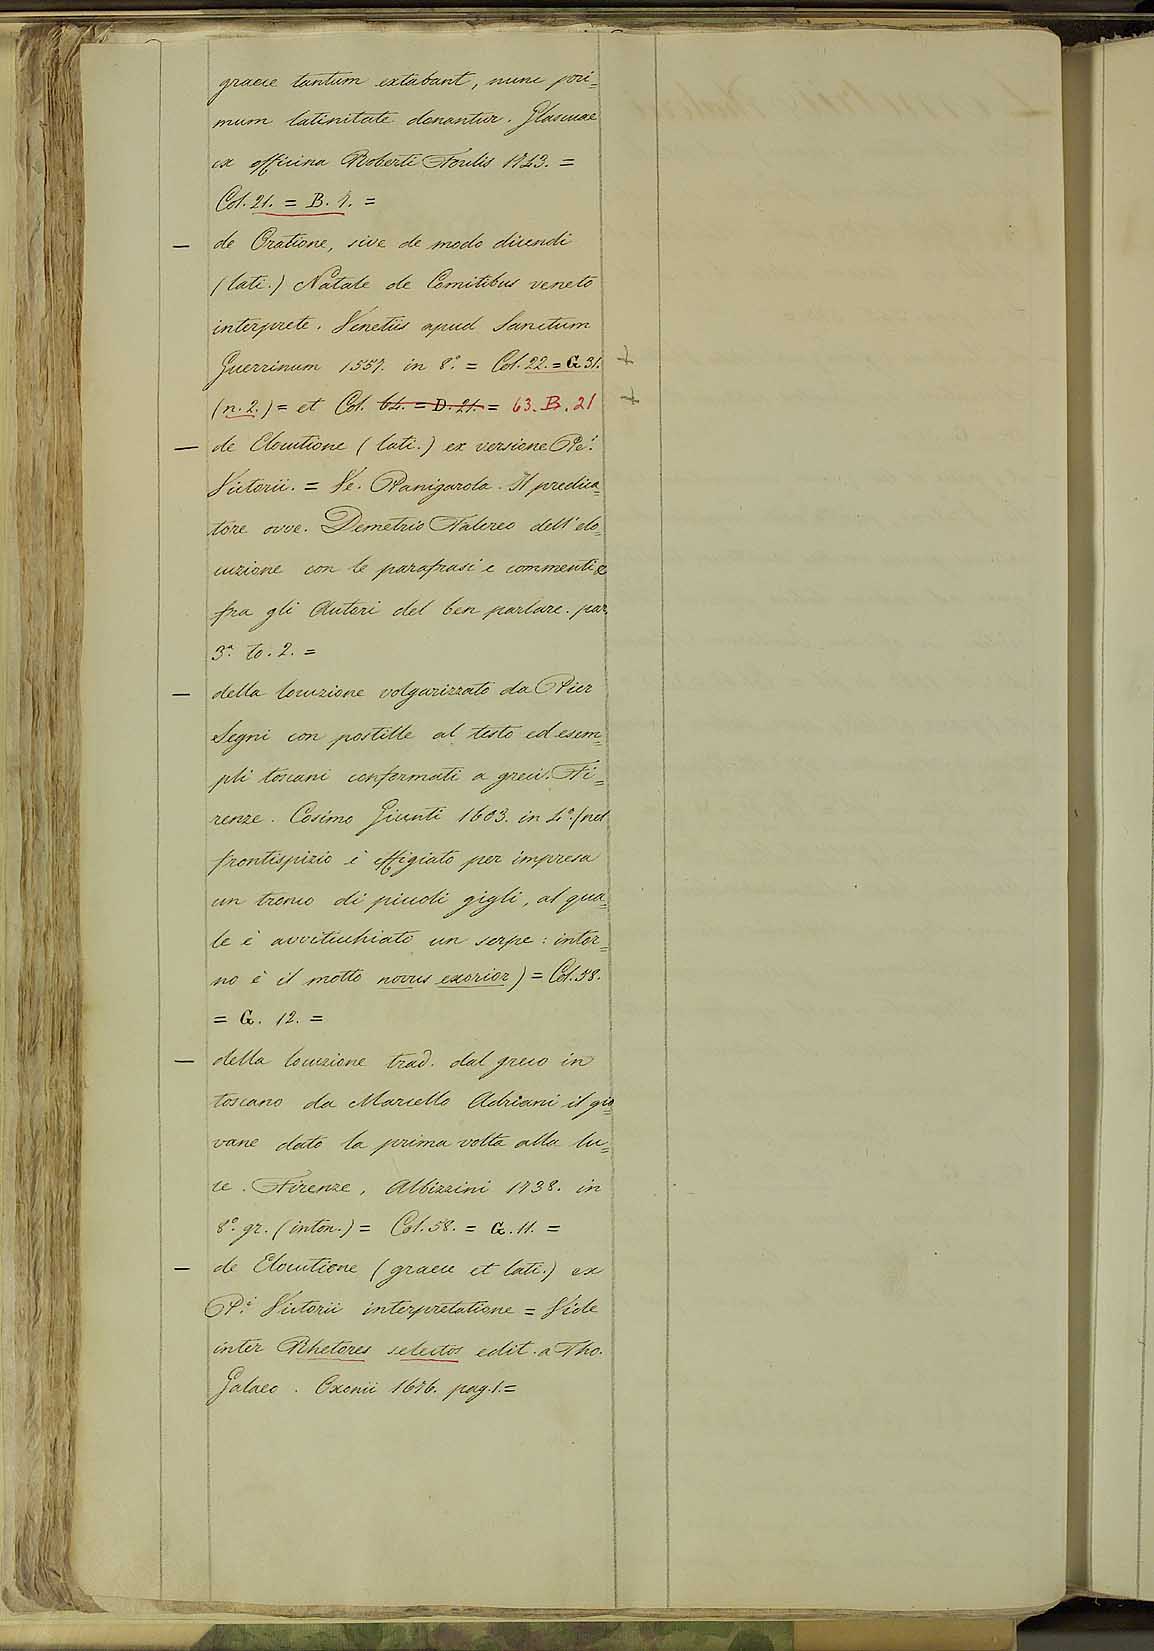 graece tantum extabant, nunc pri=
mum latinitate donantur. Glascuae
ex officina Roberti Foulis 1743. =
Col. 21. = B. 7. =
— de Oratione, sive de modo dicendi
(lati.) Natale de Comitibus veneto
interprete. Venetiis apud Sanctum
Guerrinum 1557. in 8.° = Col. 22. = G. 31.
(n. 2.) = et Col. 64. = D. 21. = 63. B. 21
— de Elocutione (lati.) ex versione Pe.i
Victorii. = Ve. Panigarola. Il predica=
tore ovve. Demetrio Falereo dell'elo=
cuzione con le parafrasi e commenti &
fra gli Autori del ben parlare. par.
3.a to. 2. =
— della locuzione volgarizzato da Pier
Segni con postille al testo ed esem=
pli toscani conformati a greci. Fi=
renze. Cosimo Giunti 1603. in 4.° (nel
frontispizio è effigiato per impresa
un tronco di piccoli gigli, al qua=
le è avviticchiato un serpe: intor=
no è il motto novus exorior) = Col. 58.
= G. 12. =
— della locuzione trad. dal greco in
toscano da Marcello Adriani il gio=
vane dato la prima volta alla lu=
ce. Firenze, Albizzini 1738. in
8.° gr. (inton.) = Col. 58. = G. 11. =
— de Elocutione (graece et lati.) ex
P.i Victorii interpretatione = Vide
inter Rhetores selectos edit. a Tho.
Galaeo. Oxonii 1676. pag. 1. =